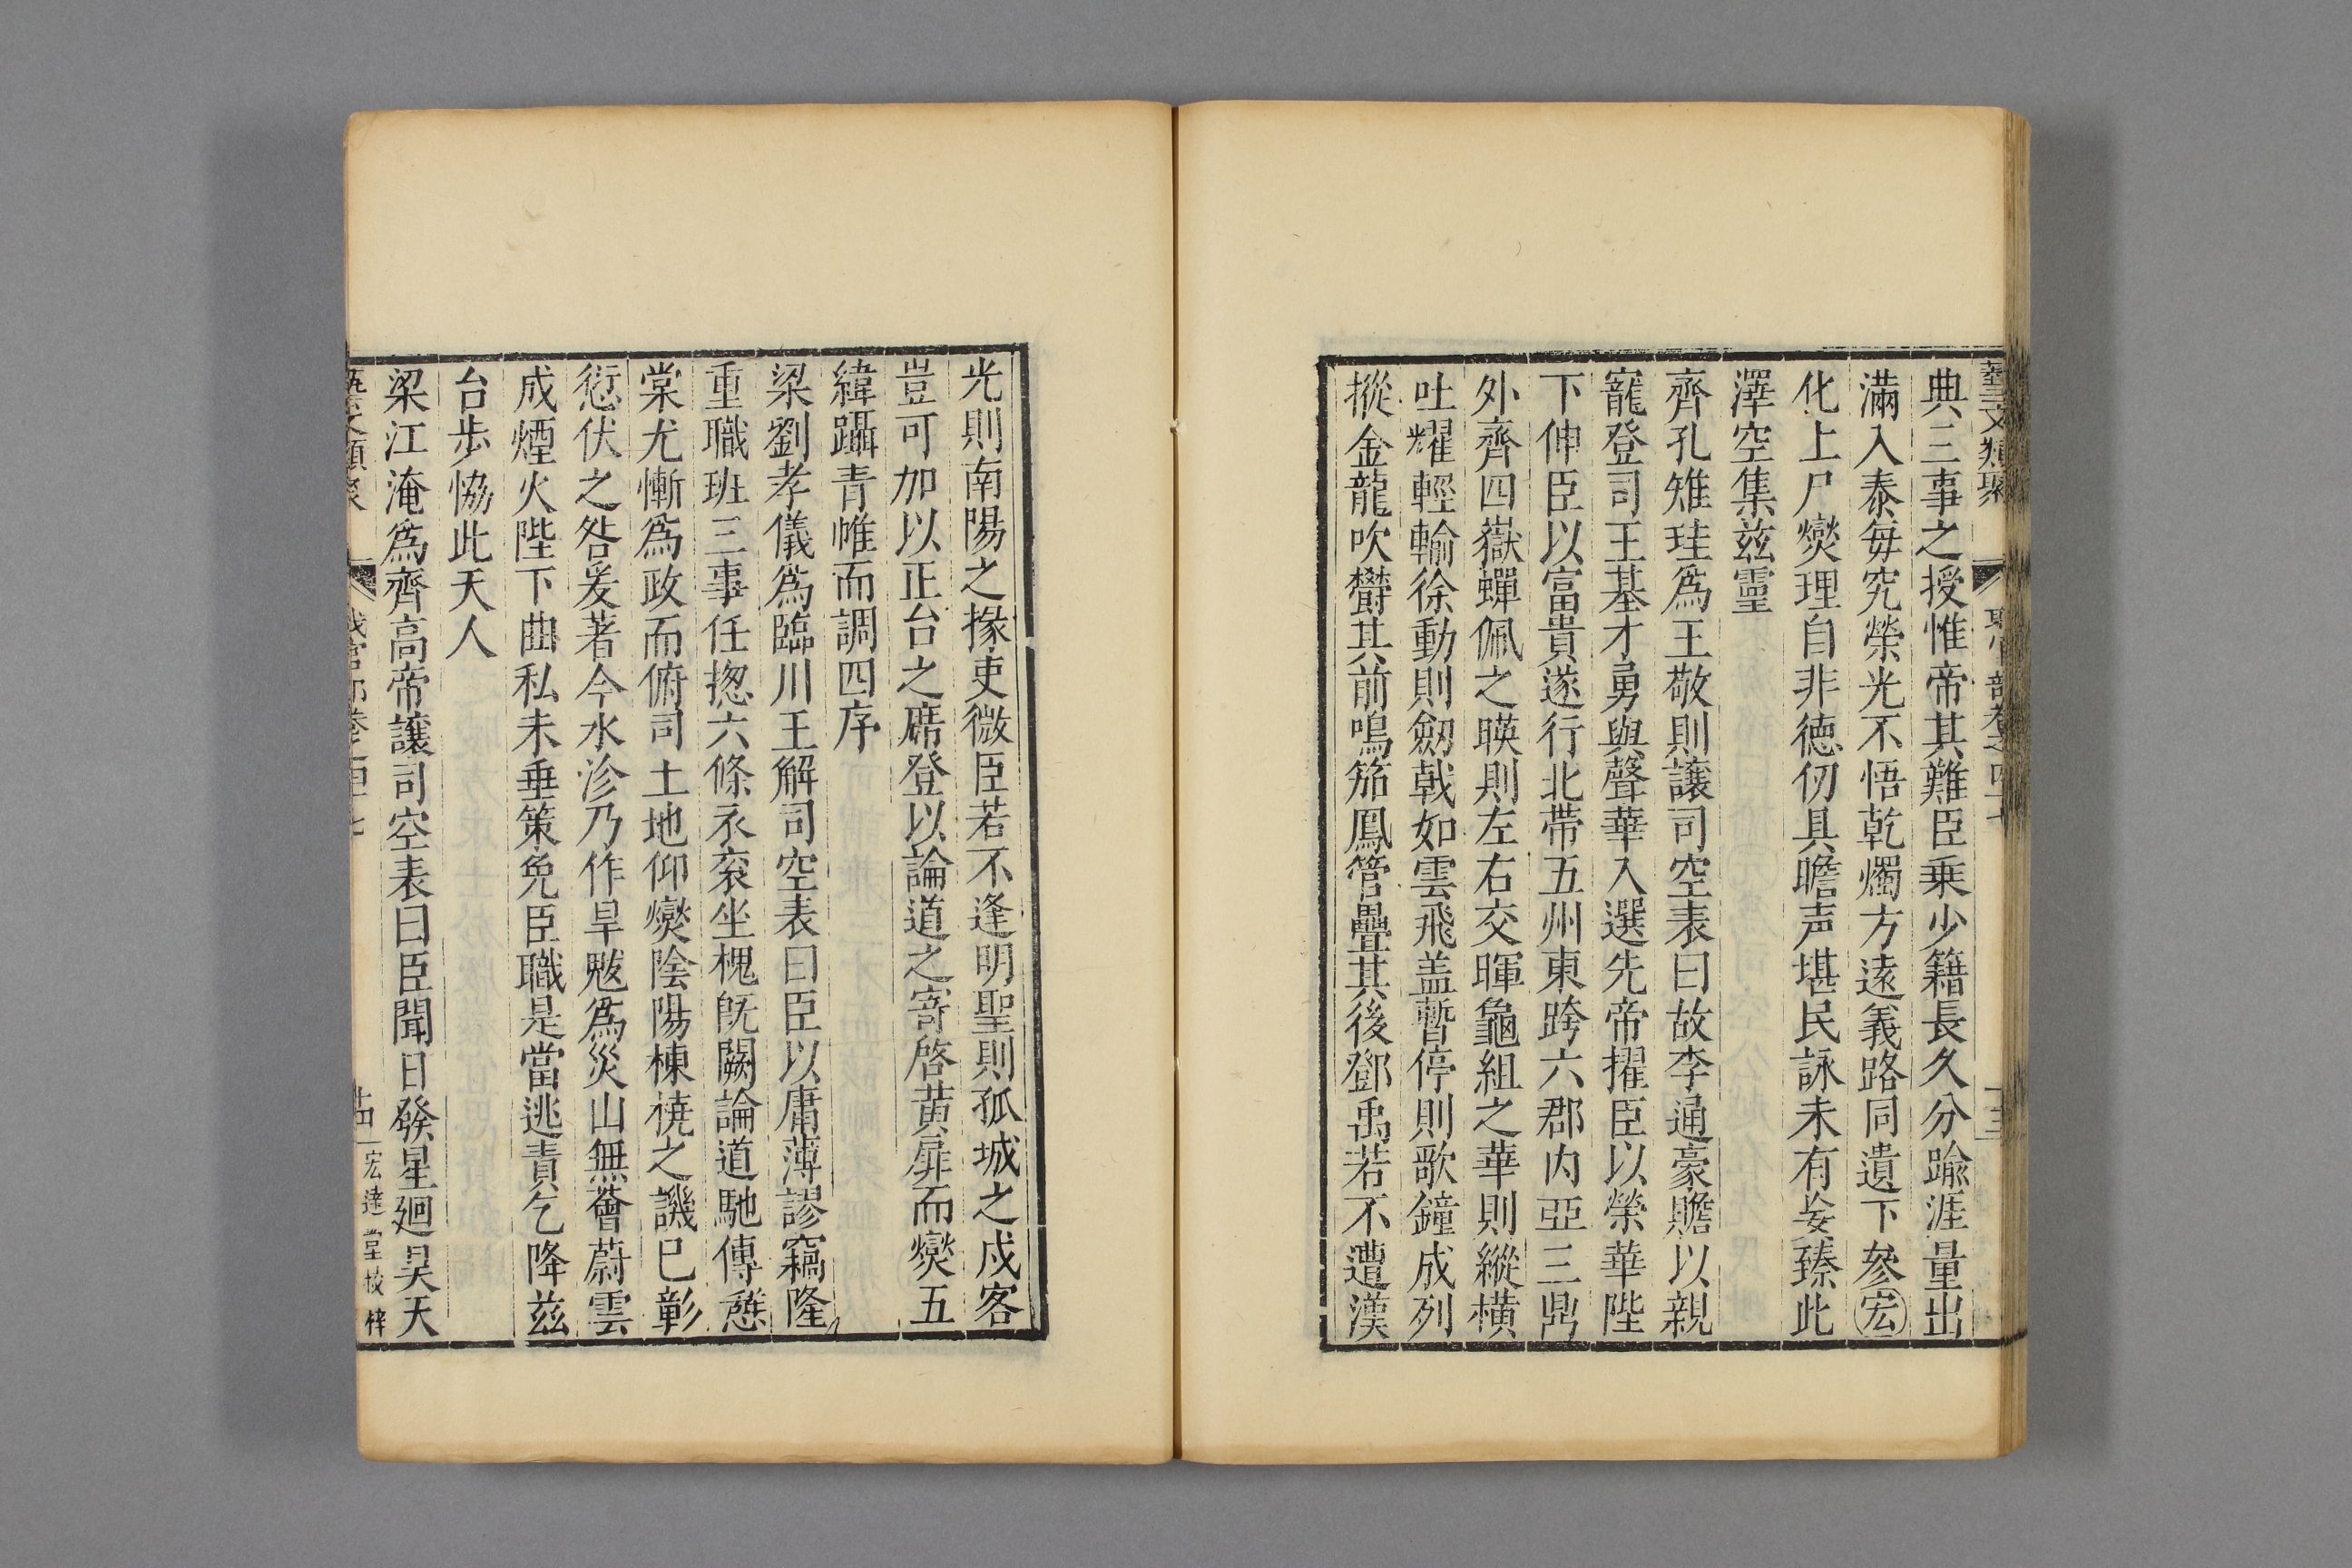 藝文類聚 職官部卷之四十七 十三
典三事之授惟帝其難臣乗少籍長久分踰涯量出
滿入泰毎究榮光不悟乾燭方逺義路同遺下參宏
化上尸爕理自非徳仞具瞻声堪民詠未有妄臻此
澤空集兹靈
齊孔雉珪爲王敬則讓司空表曰故李通豪贍以親
寵登司王基才勇與聲華入選先帝擢臣以榮華陛
下伸臣以富貴遂行北帶五州東跨六郡内亞三鼎
外齊四嶽蟬佩之暎則左右交暉龜組之華則縱横
吐耀輕輸徐動則劒戟如雲飛盖暫停則歌鐘成列
摐金龍吹欝其前鳴笳鳳管疊其後鄧禹若不遭漢
光則南陽之掾吏微臣若不逢明聖則孤城之戍客
豈可加以正台之席登以論道之寄啓黄扉而爕五
緯躡青帷而調四序
梁劉孝儀爲臨川王解司空表曰臣以庸薄謬竊隆
重職班三事任揔六條衣衮坐槐旣闕論道馳傳愆
棠尤慚爲政而俯司土地仰爕陰陽棟橈之譏已彰
愆伏之咎爰著今水沴乃作旱魃爲災山無薈蔚雲
成煙火陛下曲私未垂策免臣職是當逃責乞降兹
台歩恊此天人
梁江淹爲齊高帝讓司空表曰臣聞日發星廻昊天
藝文類聚 職官部卷之四十七 十四 宏達堂校梓